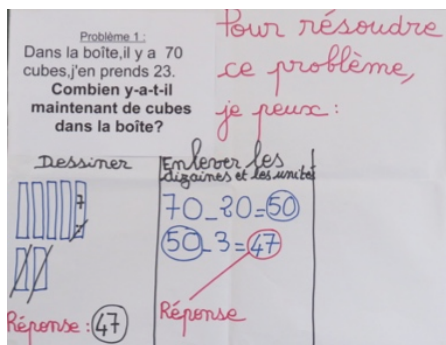 Problème 1 :
Dans la boîte,il y a 70
cubes,j'en prends 23.
Combien y-a-t-il
maintenant de cubes
dans la boîte?
Pour résoudre
ce problème,
je peux :
Dessiner
7
Réponse : 47
Enlever les
dizaines et les unités
70-20=50
50-3=47
Réponse